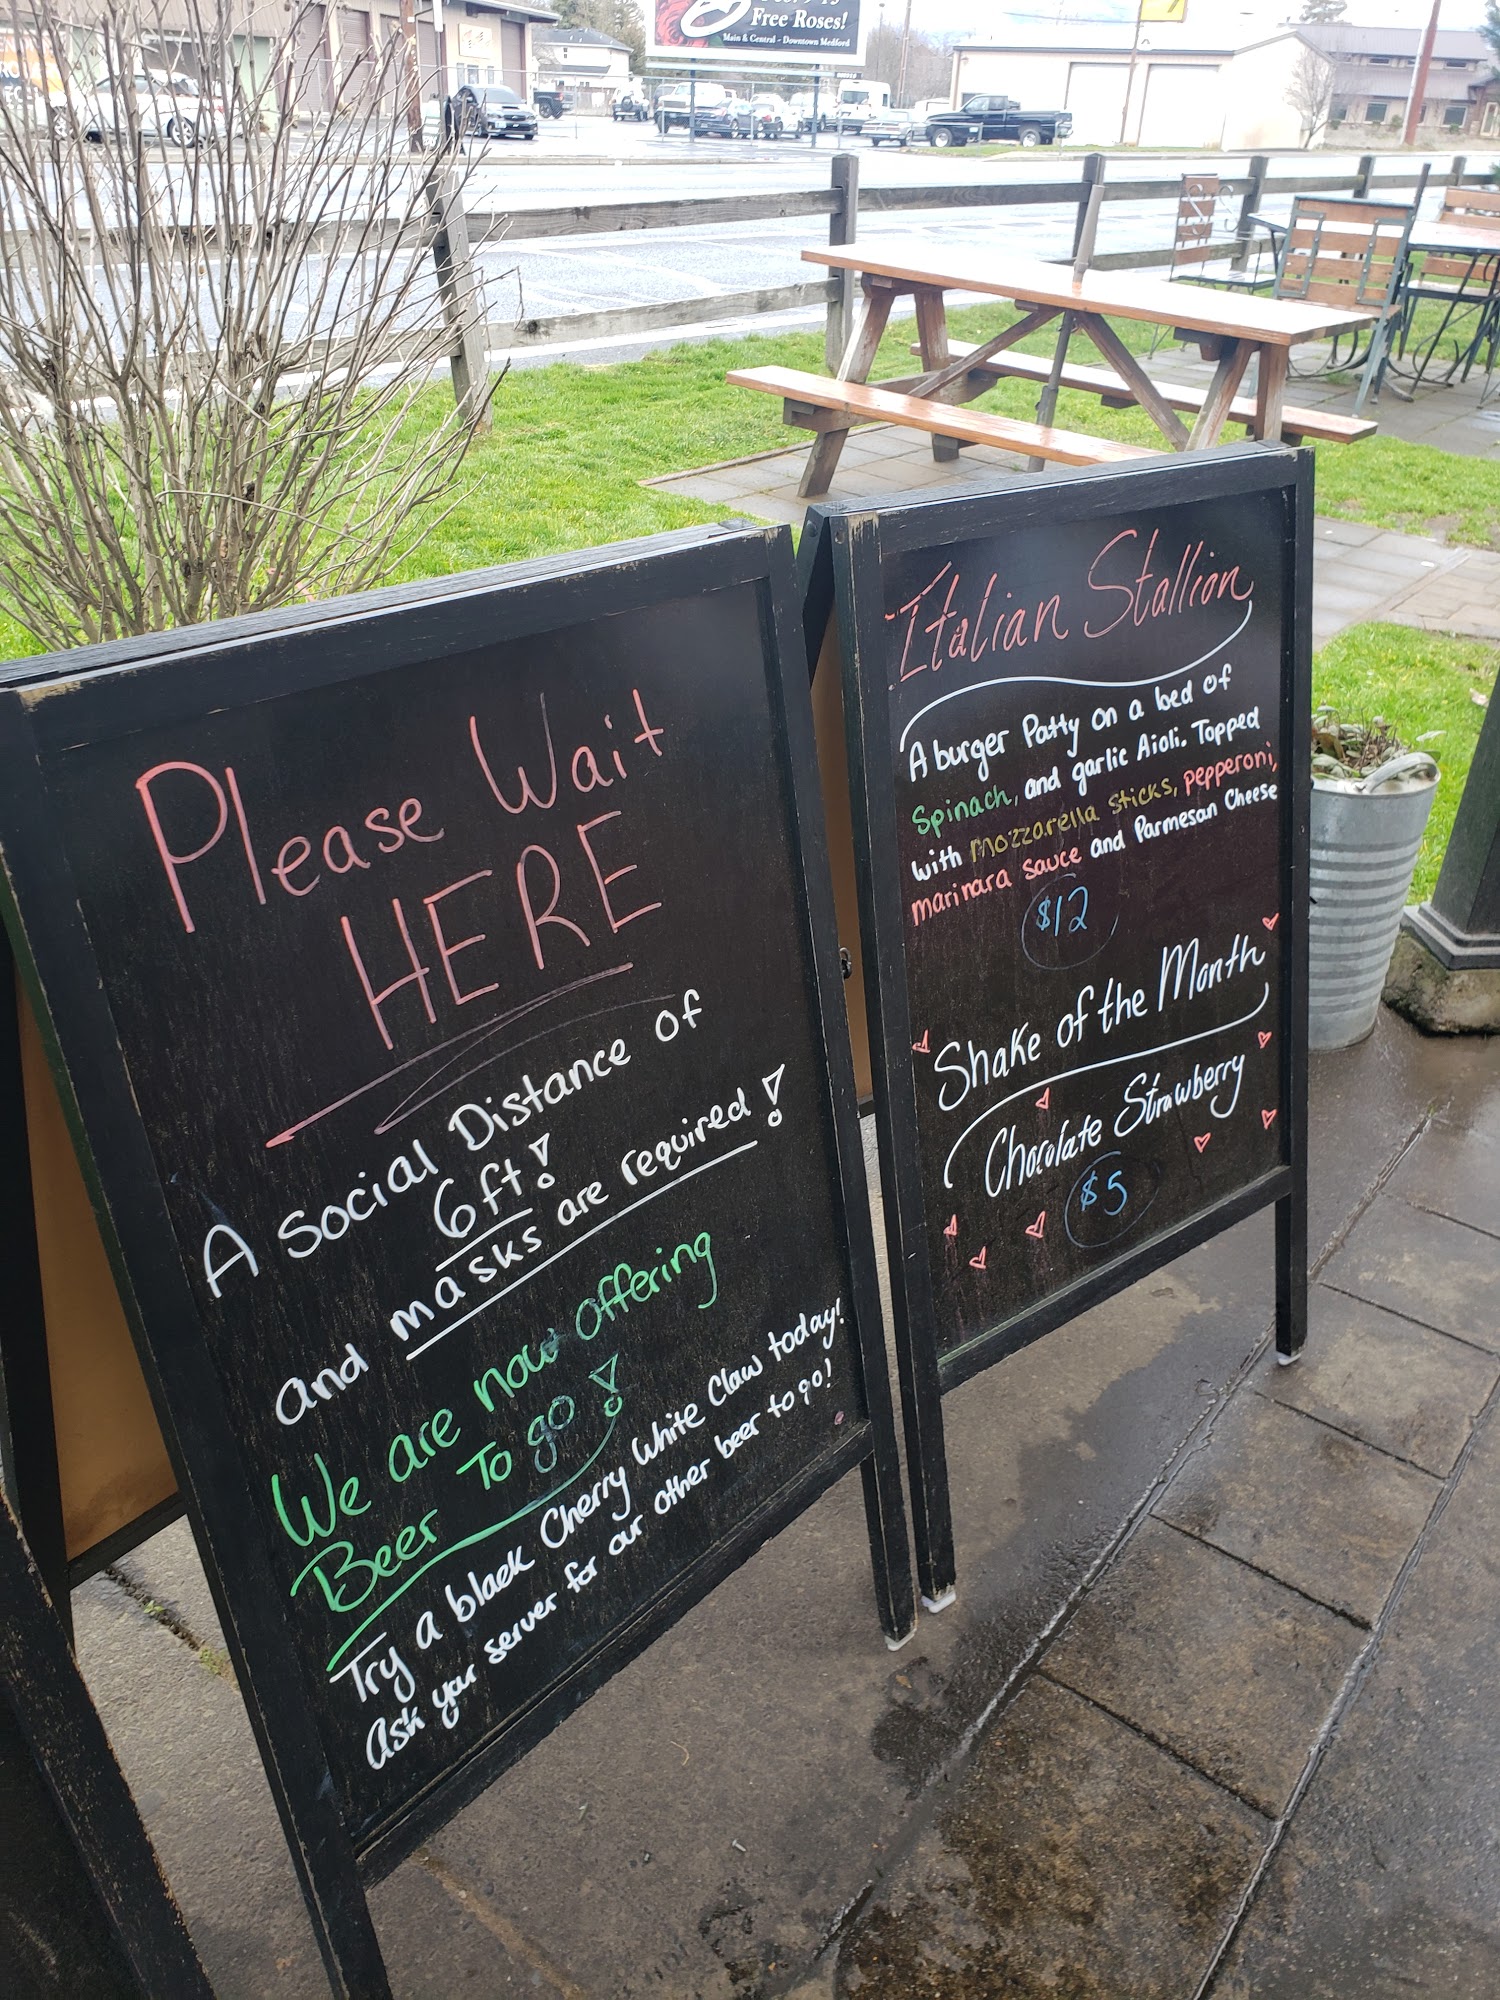 Free Roses!
Main & Central - Downtown Medford
Please Wait
HERE
A Social Distance of
6ft!
and masks are required!
We are now offering
Beer To go!
Try a black Cherry White Claw today!
Ask your server for our other beer to go!
Italian Stallion
A burger Patty on a bed of
Spinach, and garlic Aioli. Topped
with Mozzarella Sticks, pepperoni,
Marinara Sauce and Parmesan Cheese
$12
Shake of the Month
Chocolate Strawberry
$5